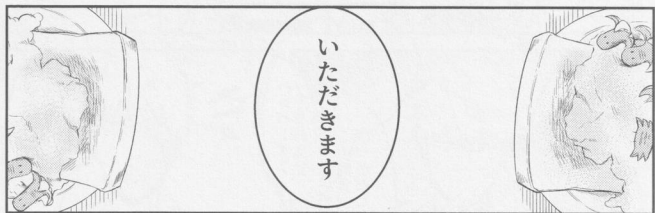 いただきます